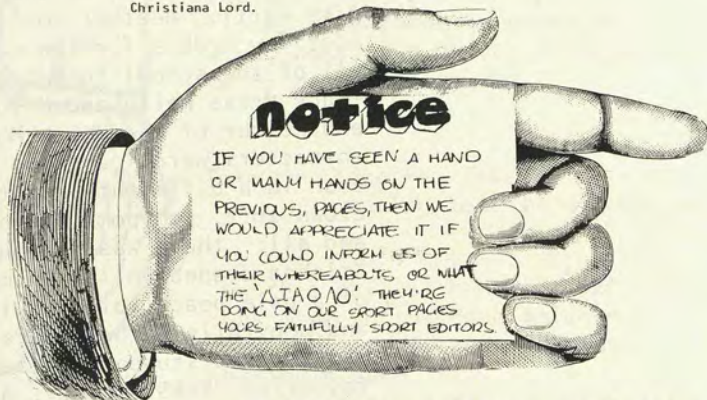 Christiana Lord.
notice
IF YOU HAVE SEEN A HAND
OR MANY HANDS ON THE
PREVIOUS, PAGES, THEN WE
WOULD APPRECIATE IT IF
YOU COULD INFORM US OF
THEIR WHEREABOUTS OR WHAT
THE 'ΔΙΑΟΛΟ' THEY'RE
DOING ON OUR SPORT PAGES
YOURS FAITHFULLY SPORT EDITORS.